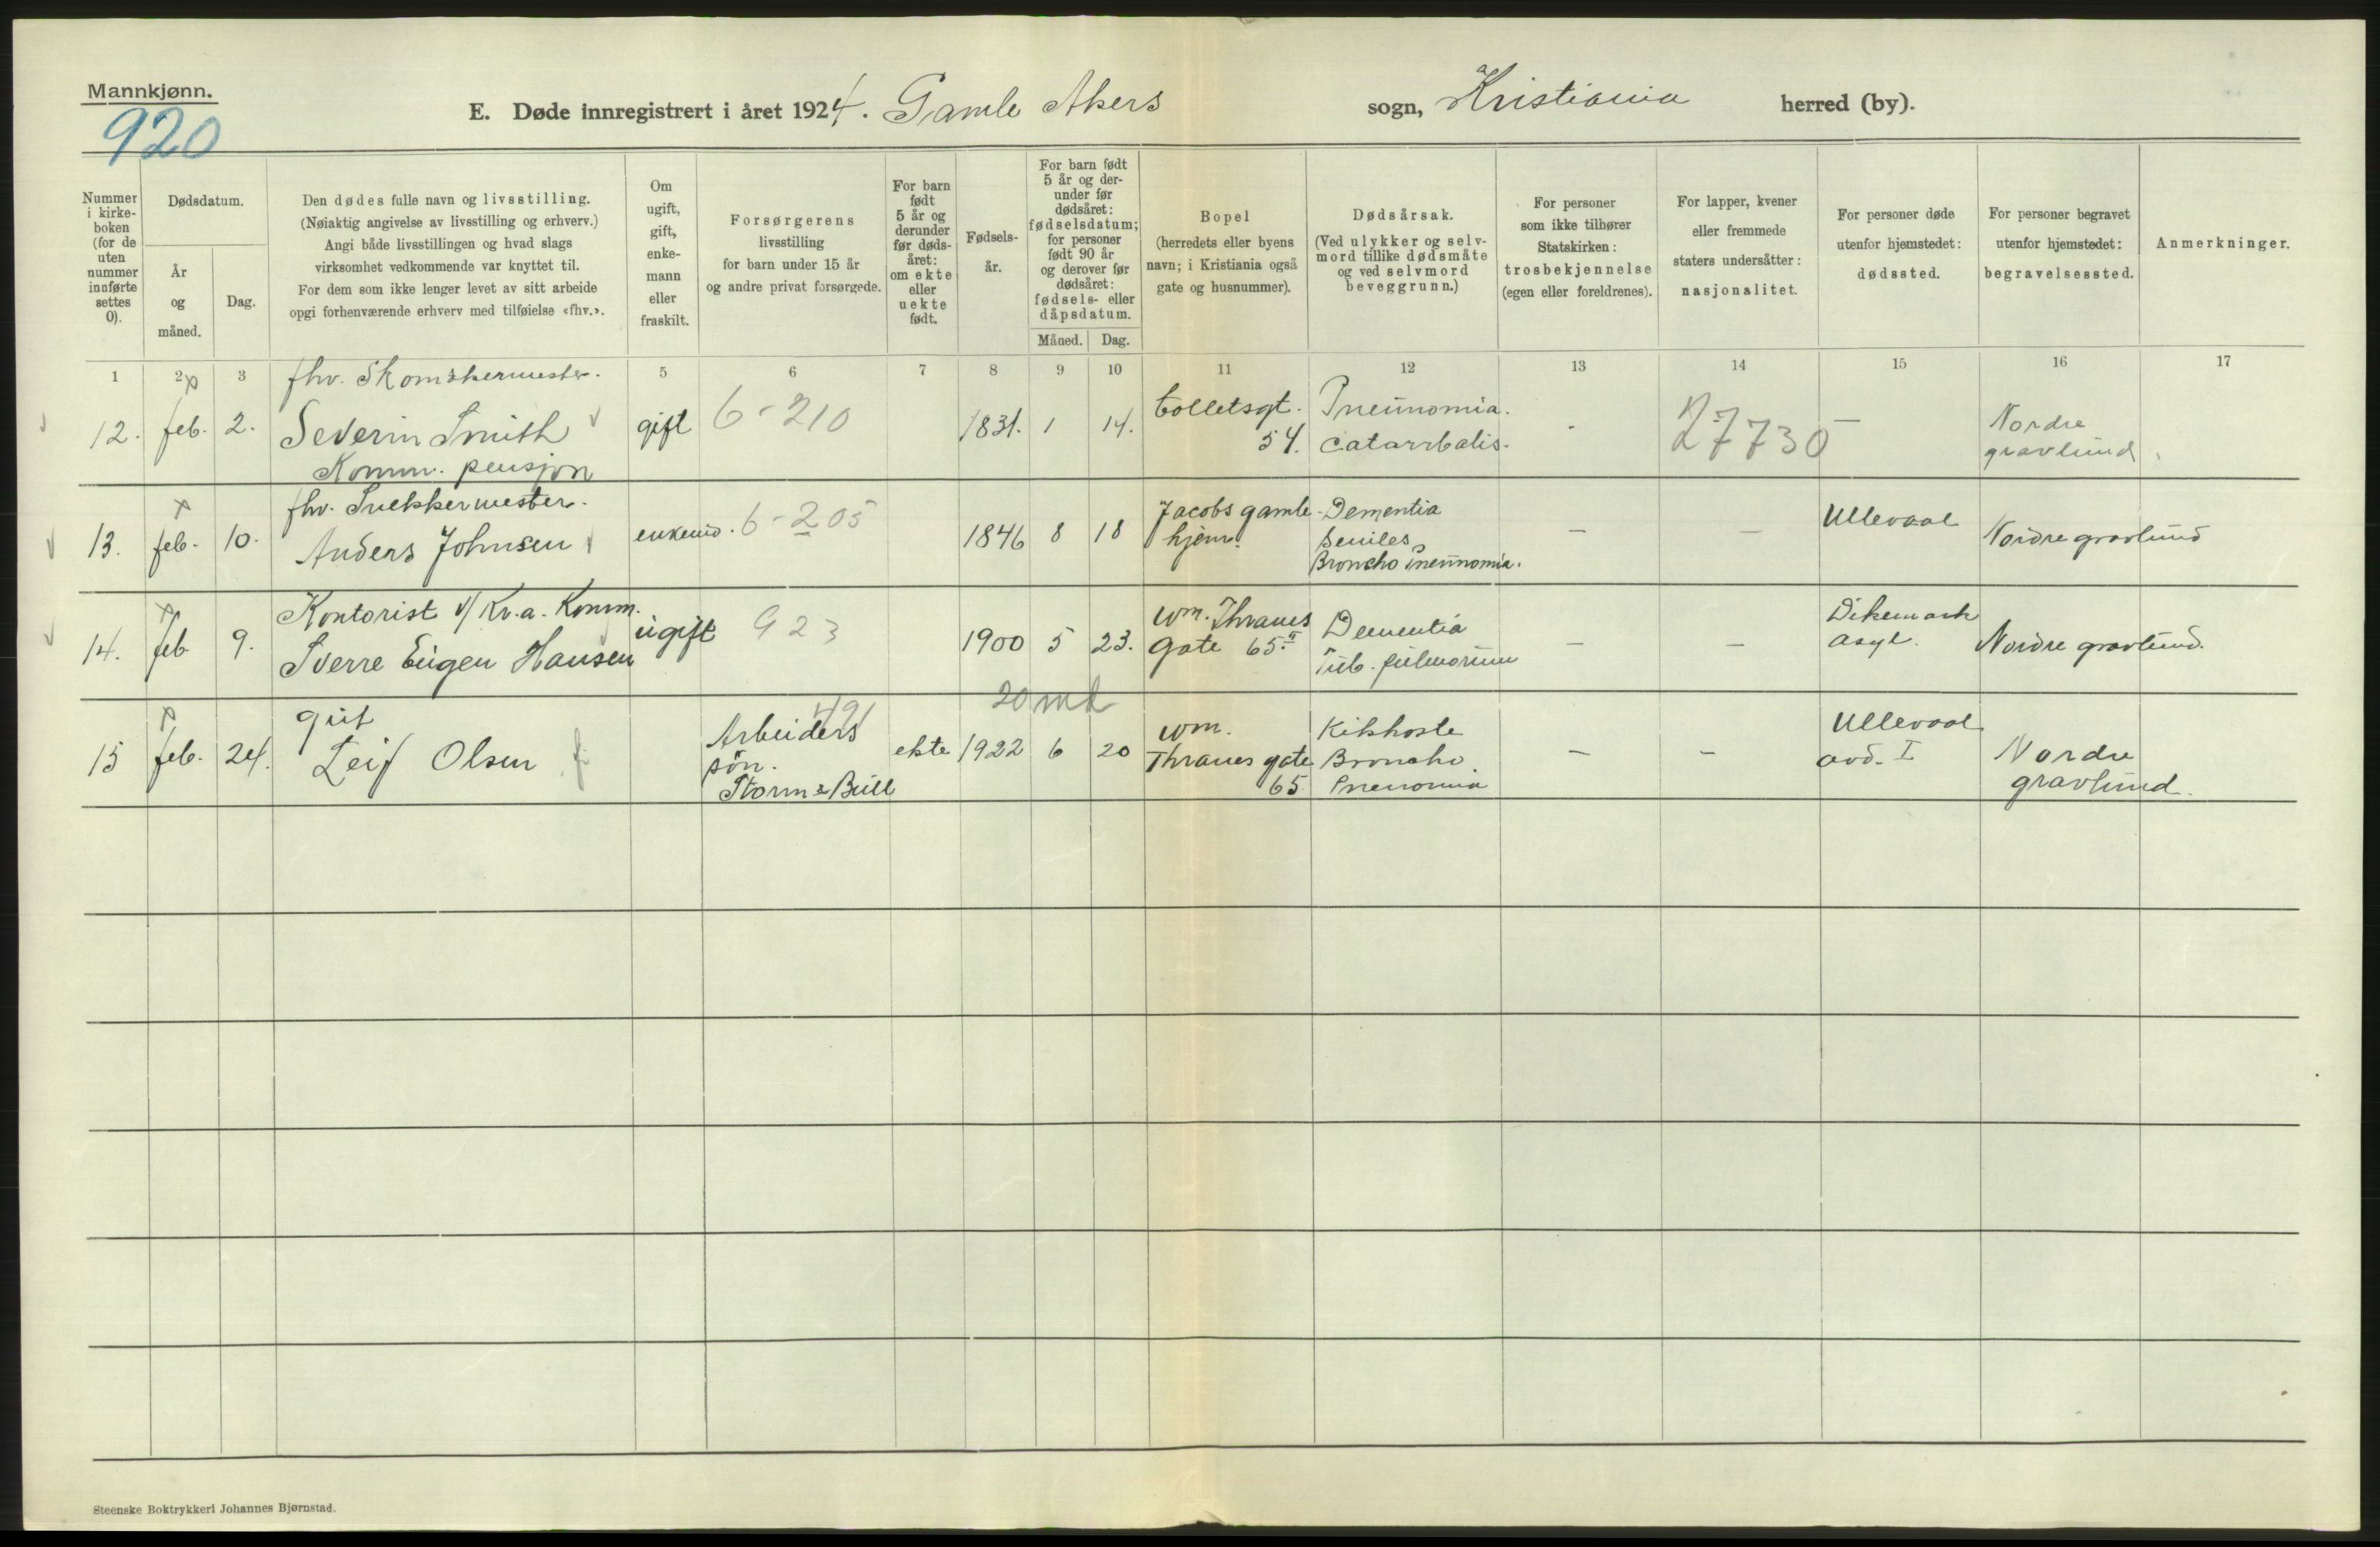 Mannkjønn.
920
E. Døde innregistrert i året 1924. Gamle Akers sogn, Kristiania herred (by).
Nummer i kirke-boken (for de uten nummer innførte settes 0).
Dødsdatum.
År og måned.
Dag.
Den dødes fulle navn og livsstilling.
(Nøiaktig angivelse av livsstilling og erhverv.)
Angi både livsstillingen og hvad slags
virksomhet vedkommende var knyttet til.
For dem som ikke lenger levet av sitt arbeide
opgi forhenværende erhverv med tilføielse «fhv.».
Om ugift, gift, enke-mann eller fraskilt.
Forsørgerens
livsstilling
for barn under 15 år
og andre privat forsørgede.
For barn født 5 år og derunder før døds-året: om ekte eller uekte født.
Fødsels-år.
For barn født 5 år og der-under før dødsåret: fødselsdatum; for personer født 90 år og derover før dødsåret: fødsels- eller dåpsdatum.
Måned. Dag.
Bopel
(herredets eller byens
navn; i Kristiania også
gate og husnummer).
Dødsårsak.
(Ved ulykker og selv-
mord tillike dødsmåte
og ved selvmord
beveggrunn.)
For personer
som ikke tilhører
Statskirken:
trosbekjennelse
(egen eller foreldrenes).
For lapper, kvener
eller fremmede
staters undersåtter:
nasjonalitet.
For personer døde
utenfor hjemstedet:
dødssted.
For personer begravet
utenfor hjemstedet:
begravelsessted.
Anmerkninger.
1 2 3 5 6 7 8 9 10 11 12 13 14 15 16 17
fhv. Skomakermester.
12. feb. 2. Severin Smith gift 6-210 1831. 1 14. Colletsgt. 54. Pneumomia. catarrhalis. - 27730 - Nordre gravlund
Komm. pensjon
fhv. Snekkermester.
13. feb. 10. Anders Johnsen enkemd. 6-205 1846 8 18 Jacobs gamle-hjem. Dementia Seniles Broncho Pneumomia. - - Ullevaal Nordre gravlund
Kontorist v/ Kr.a. Komm.
14. feb 9. Sverre Eugen Hansen ugift 923 1900 5 23. Wm. Thranes Gate 65 II Dementia Tub. pulmorum - - Dikemark asyl. Nordre gravlund.
20 md
gut
15 feb. 24. Leif Olsen Arbeiders 491 søn. Storm & Bull ekte 1922 6 20 Wm. Thranes gate 65 Kikhoste Broncho Pneuomia - - Ullevaal avd. I Nordre gravlund.
Steenske Boktrykkeri Johannes Bjørnstad.